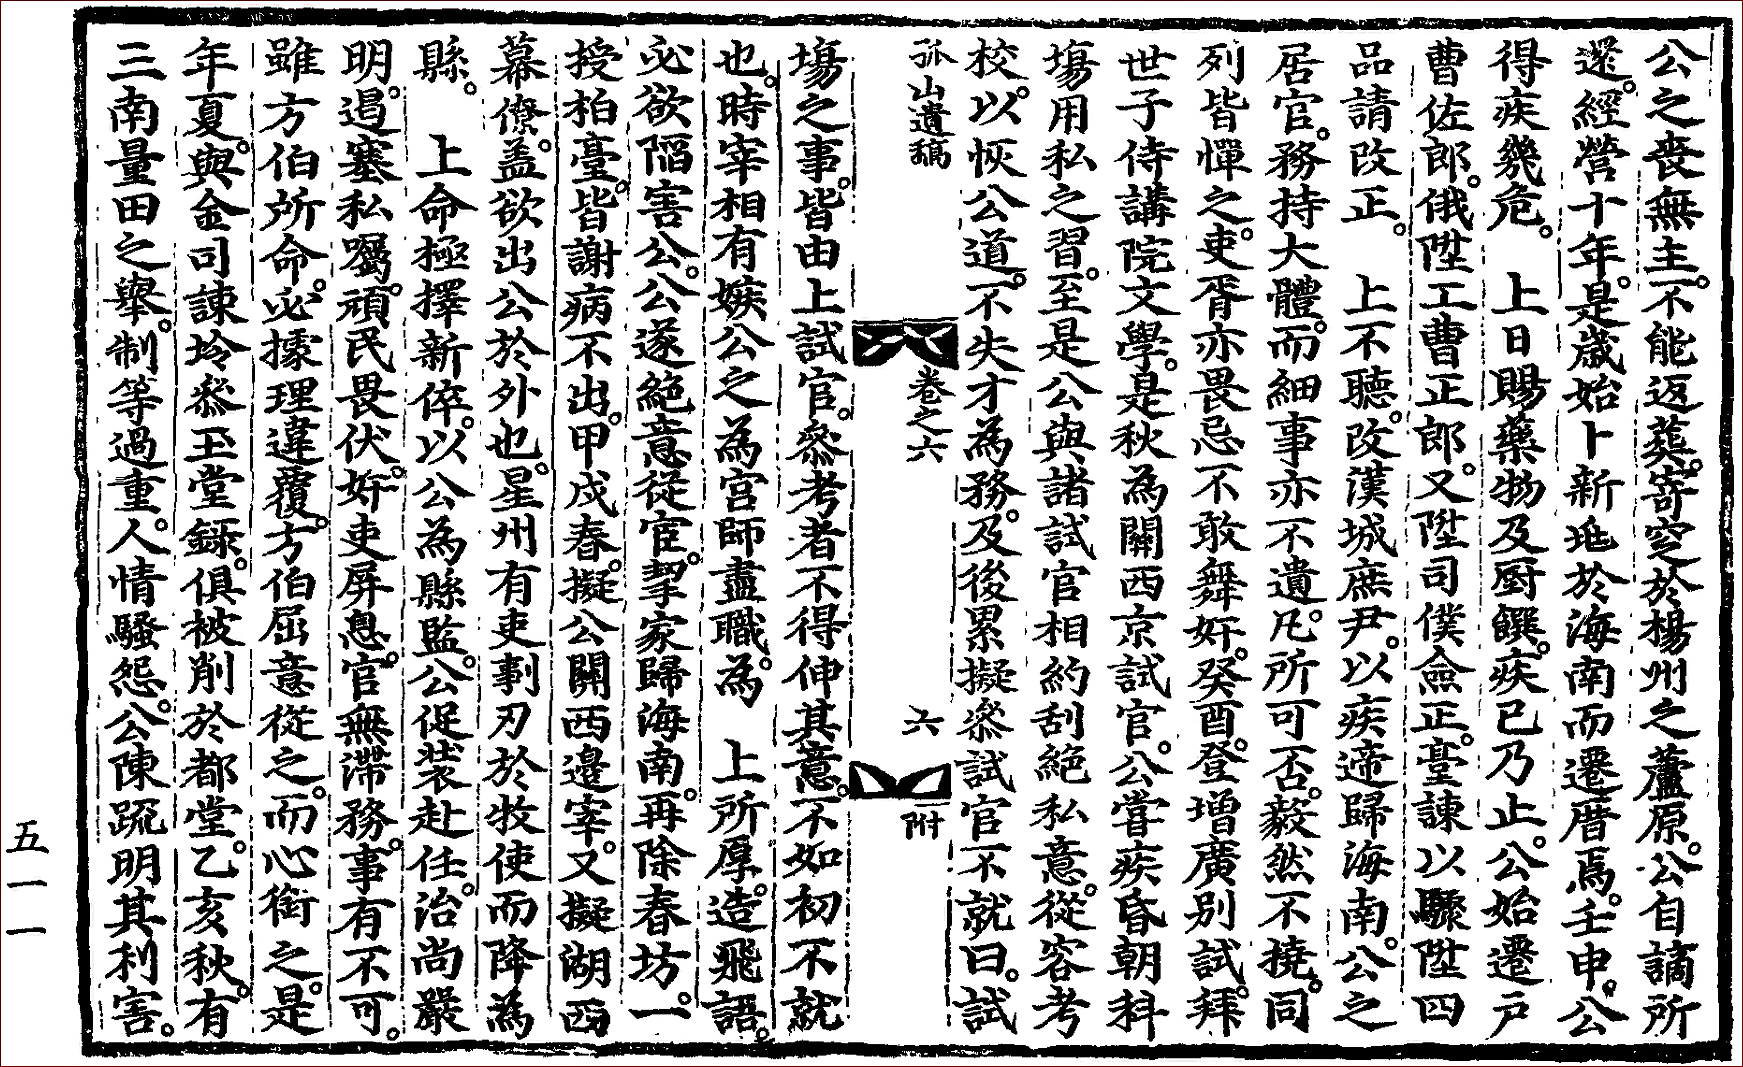 公之喪無主。不能返葬。寄窆於楊州之蘆原。公自謫所
還。經營十年。是歲始卜新地於海南而遷厝焉。壬申。公
得疾幾危。 上日賜藥物及厨饌。疾已乃止。公始遷戶
曹佐郎。俄陞工曹正郎。又陞司僕僉正。臺諫以驟陞四
品請改正。 上不聽。改漢城庶尹。以疾遞歸海南。公之
居官。務持大體。而細事亦不遺。凡所可否。毅然不撓。同
列皆憚之。吏胥亦畏忌不敢舞奸。癸酉。登增廣別試。拜
世子侍講院文學。是秋為關西京試官。公嘗疾昏朝科
場用私之習。至是公與諸試官相約刮絶私意。從容考
校。以恢公道。不失才為務。及後累擬叅試官不就曰。試
孤山遺稿 卷之六 六 附
場之事。皆由上試官。叅考者不得伸其意。不如初不就
也。時宰相有嫉公之為宮師盡職。為 上所厚。造飛語。
必欲陷害公。公遂絶意從宦。挈家歸海南。再除春坊。一
授柏臺。皆謝病不出。甲戌春。擬公關西邊宰。又擬湖西
幕僚。盖欲出公於外也。星州有吏剚刃於牧使而降為
縣。 上命極擇新倅。以公為縣監。公促裝赴任。治尚嚴
明。遏塞私囑。頑民畏伏。奸吏屏息。官無滯務。事有不可。
雖方伯所命。必據理違覆。方伯屈意從之。而心銜之。是
年夏。與金司諫坽叅玉堂錄。俱被削於都堂。乙亥秋。有
三南量田之擧。制等過重。人情騷怨。公陳疏明其利害。
五一一